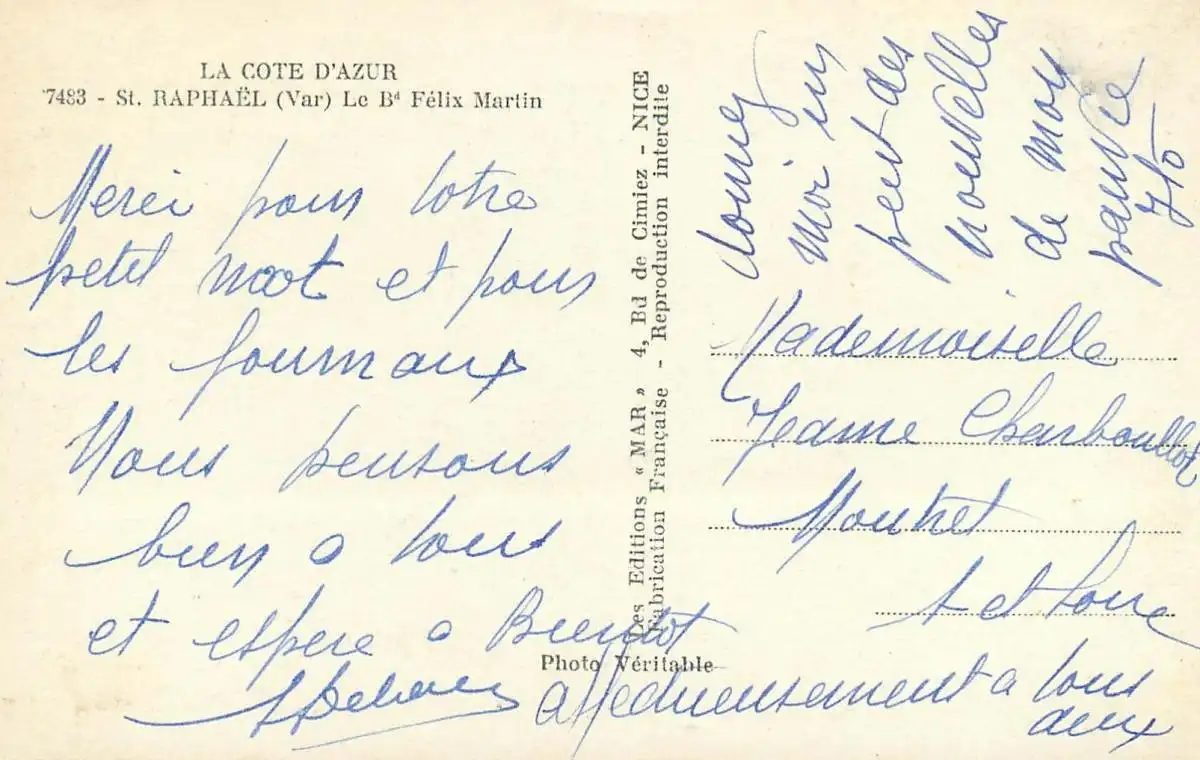 LA COTE D'AZUR
7483 - St. RAPHAËL (Var) Le Bd Félix Martin
Merci pour votre
petit mot et pour
les journaux
Nous pensons
bien a tous
et espere a Bientot
affectueusement a tous
deux
Les Editions « MAR » 4, Bd de Cimiez - NICE
Fabrication Française - Reproduction interdite
Photo Véritable
donnez
moi un
peut des
nouvelles
de mon
pauvre
Mademoiselle
Jeanne Charboullot
Montret
S et Loire